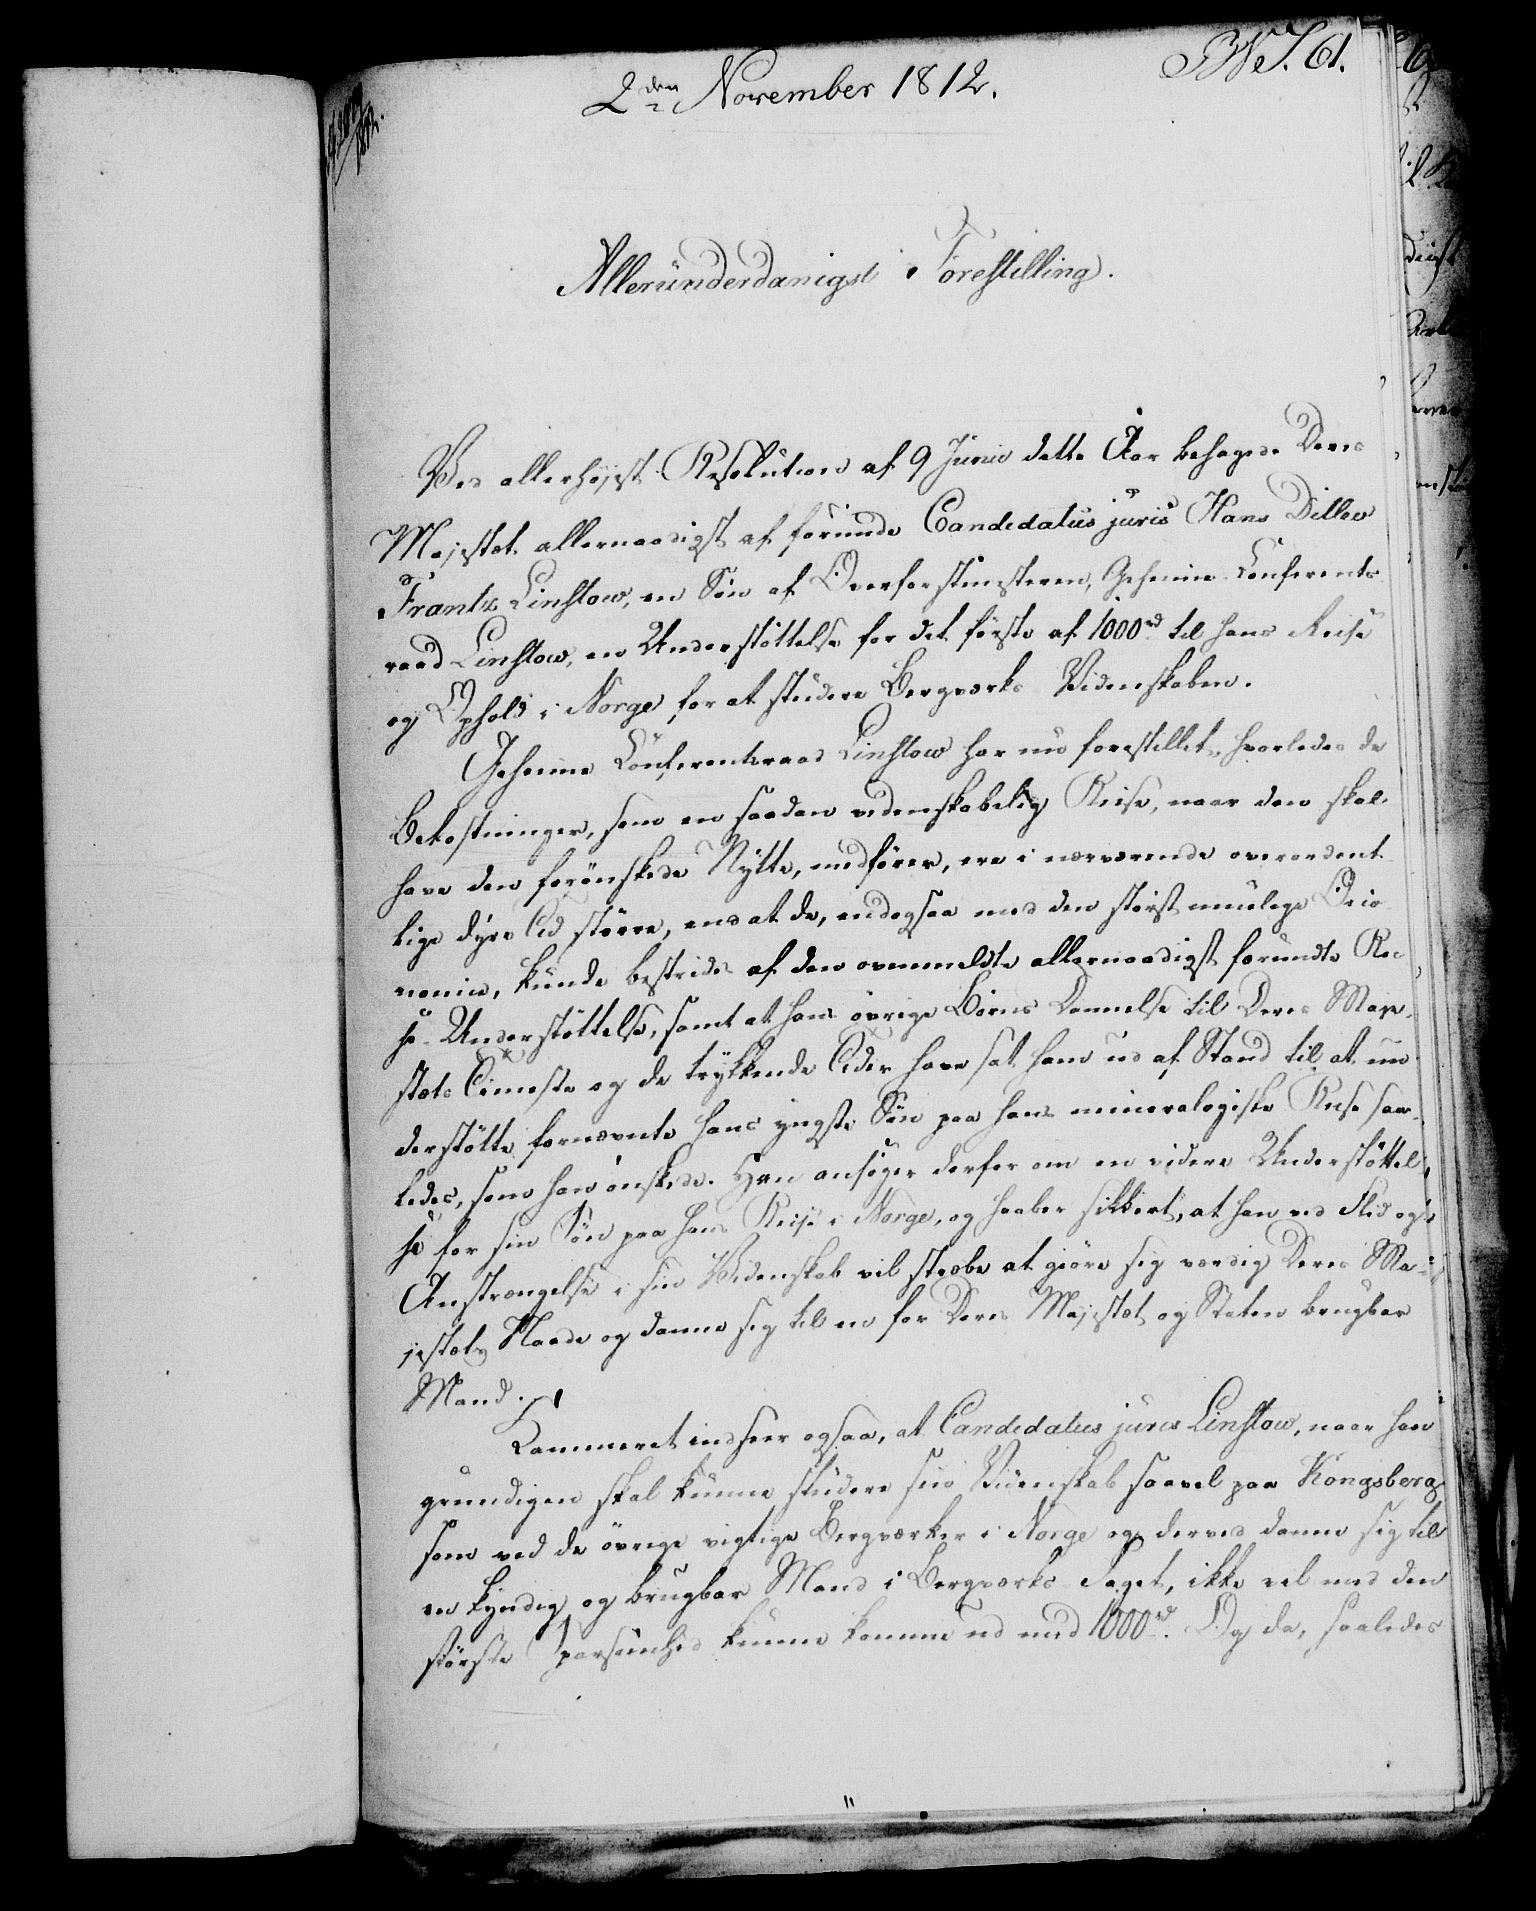 2den November 1812.
Allerunderdanigst Forestilling.
Ved allerhøjest Resolution af 9 Junii dette Aar behagede Deres
Majestæt allernaadigst at forunde Candidatus juris Hans Ditlew
Frantz Linstow, en Søn af Overforstmesteren, Geheime Conferents-
raad Linstow, en Understøttelse for det første af 1000 rd til hans Reise
og Ophold i Norge for at studere Bergværks Videnskaben.
Geheime Conferentsraad Linstow har nu forestillet, hvorledes de
Bekostninger, som en saadan videnskabelig Reise, naar den skal
have den forønskede Nytte, medfører, ere i nærværende overordent-
lige dyre Tid større, end at de, endogsaa med den størst muelige Oeco-
nomie, kunde bestrides af den ovenmeldte allernaadigst forundte Rei-
se-Understøttelse, samt at hans øvrige Børns Dannelse til Deres Maje-
stæts Tieneste og de trykkende Tider have sat ham ud af Stand til at un-
derstøtte fornævnte hans yngste Søn paa hans mineralogiske Reise saa-
ledes, som han ønskede. Han ansøger derfor om en videre Understøttel-
se for sin Søn paa hans Reise i Norge, og haaber sikkert, at han ved Flid og
Anstrængelse i sin Videnskab vil stræbe at giøre sig værdig Deres Ma-
jestæts Naade og danne sig til en for Deres Majestæt og Staten brugbar
Mand.
Kammeret indseer ogsaa, at Candidatus juris Linstow, naar han
grundigen skal kunne studere sin Videnskab saavel paa Kongsberg
som ved de øvrige vigtige Bergværker i Norge og derved danne sig til
en kyndig og brugbar Mand i Bergværks Faget, ikke vel med den
største Sparsomhed kunne komme ud med 1000 rd. Og da, saaledes